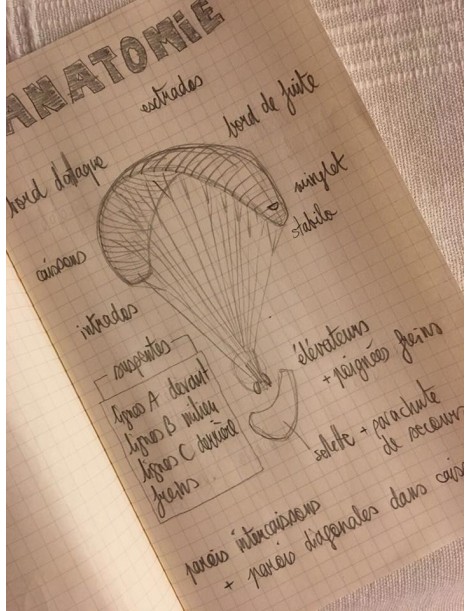 ANATOMIE
extrados
bord de fuite
bord d'attaque
winglet
stabilo
caissons
intrados
suspentes
lignes A devant
lignes B milieu
lignes C derrière
freins
élévateurs
+ poignées freins
sellette + parachute
de secours
parois intercaissons
+ parois diagonales dans